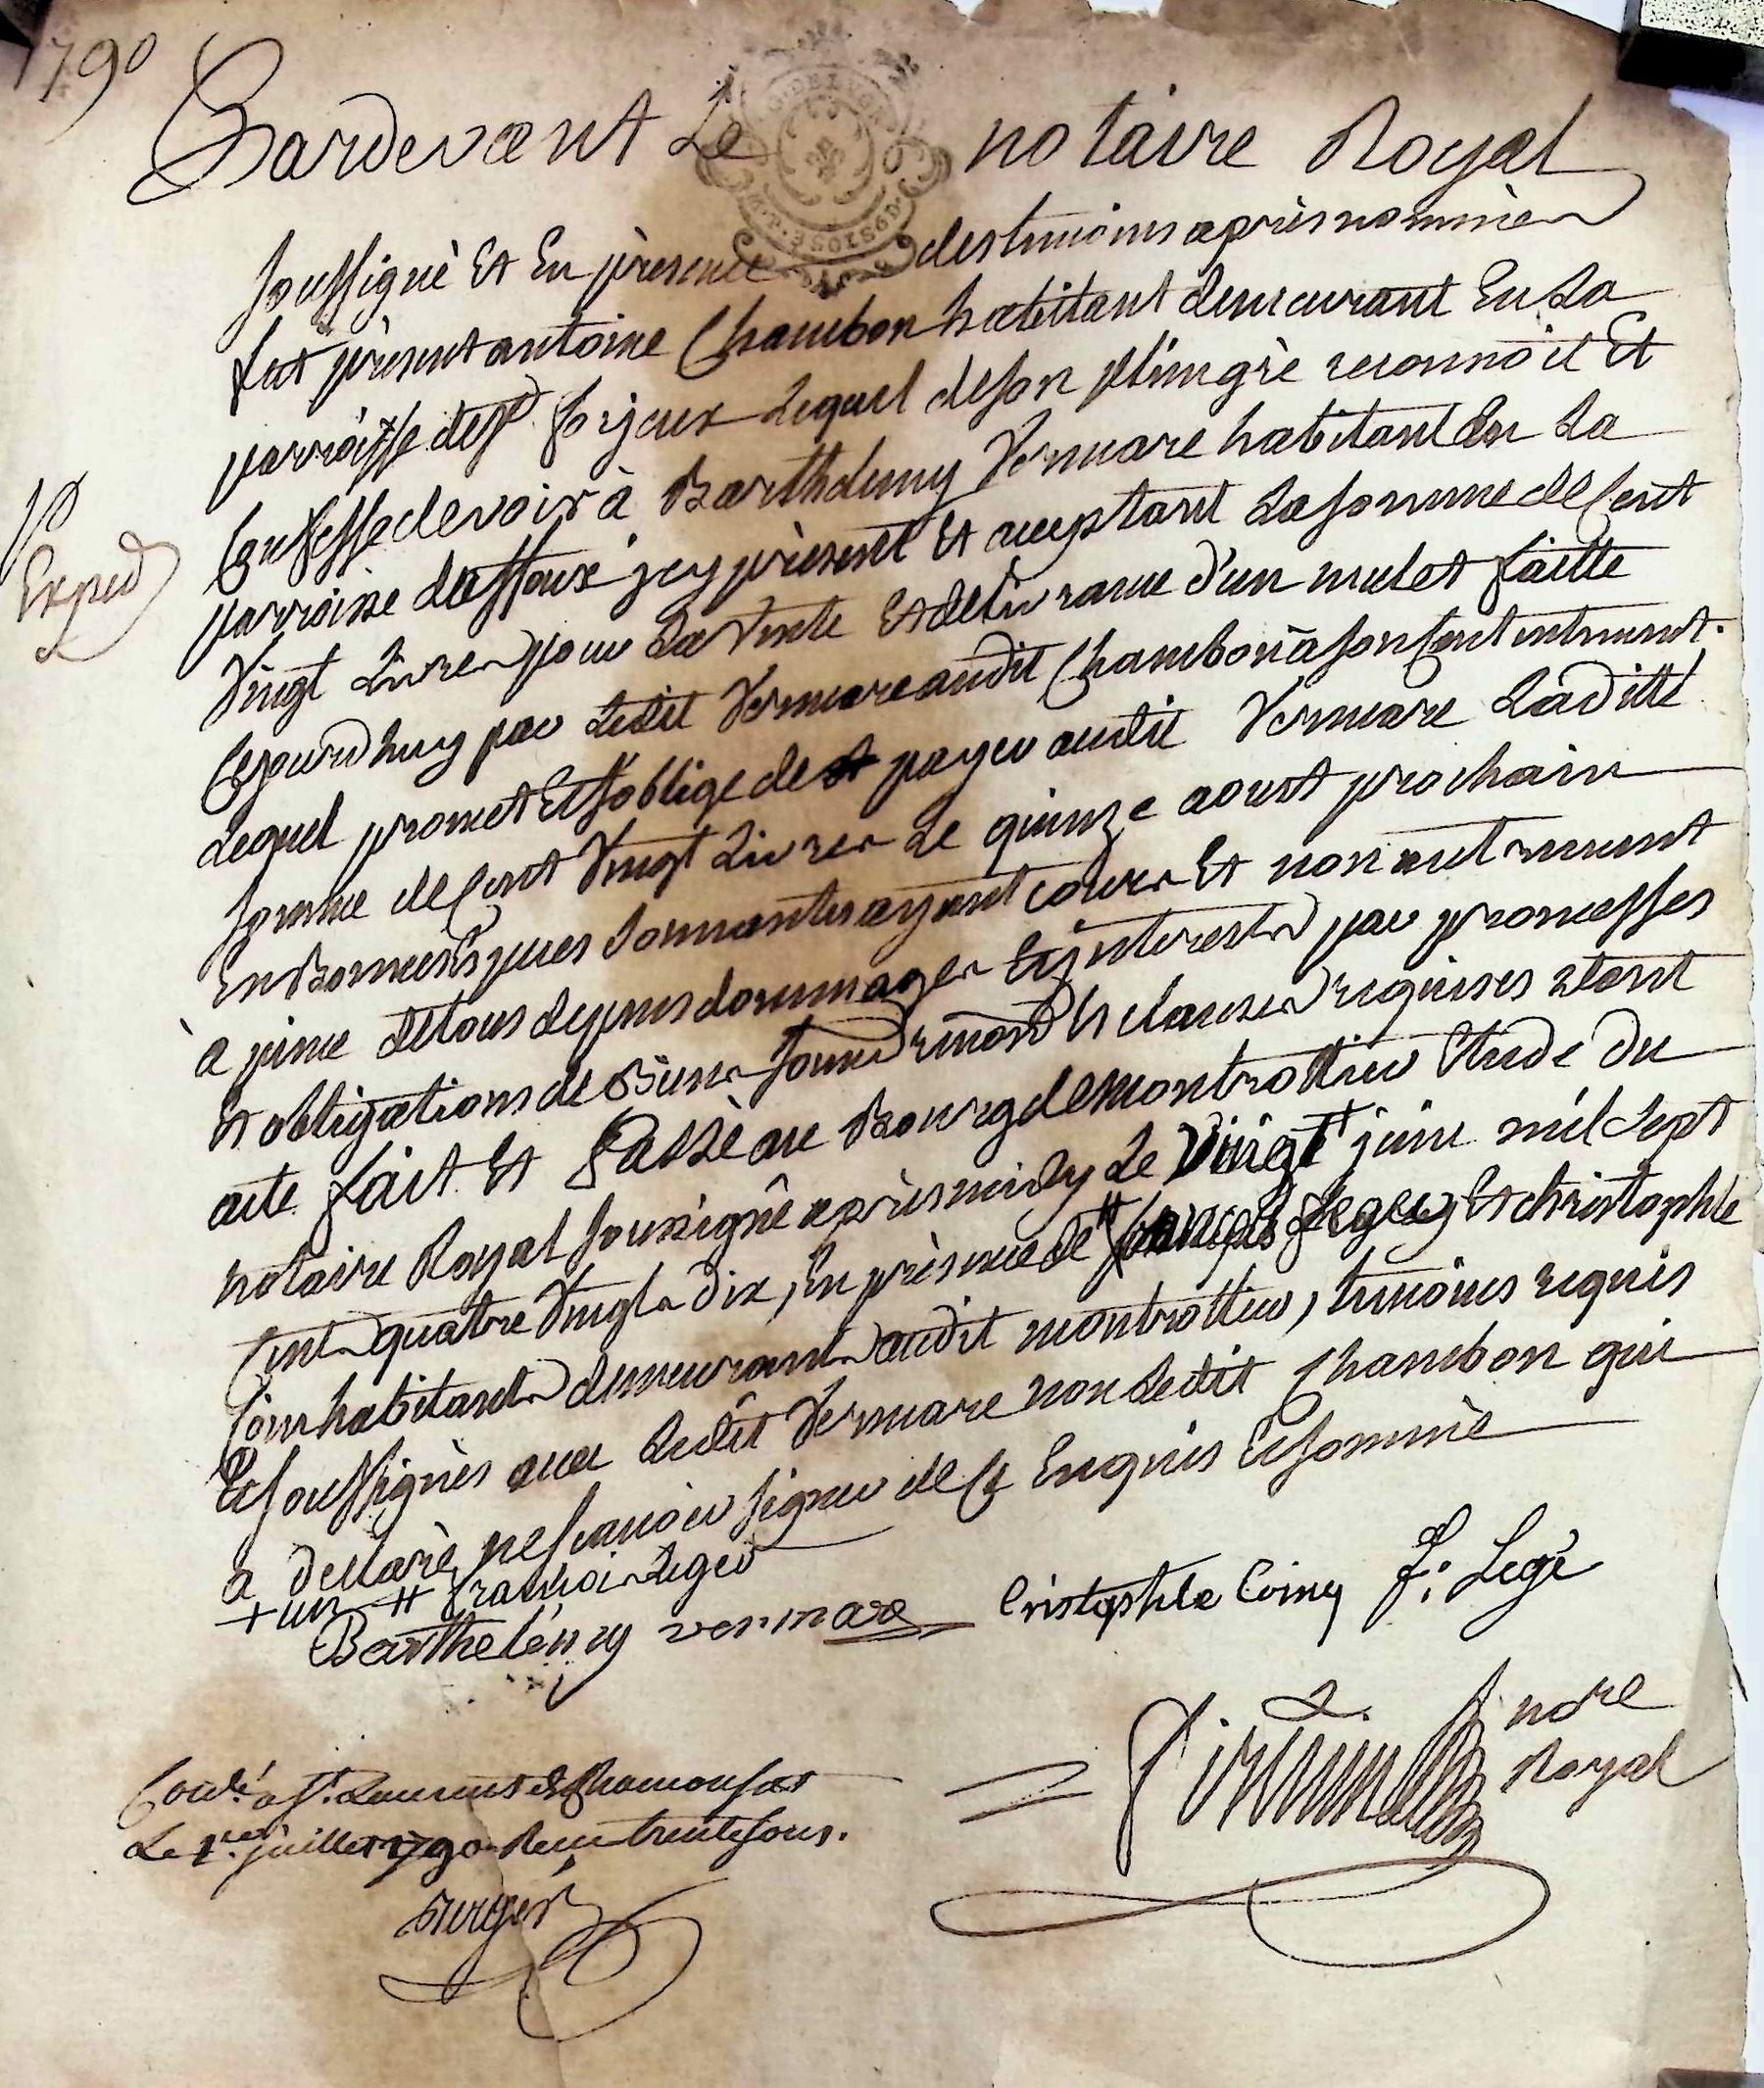 1790
Pardevant Le notaire Royal
soussigné Et En présence des temoins après nommés
fut présent antoine Chambon habitant demeurant En La
parroisse de st. forjeux Lequel de son plein gré reconnoit Et
Confesse devoir à Barthelemy Vermare habitant En La
parroisse dassoux icy présent Et acceptant La somme de Cent
Vingt Livres pour La Vente Et delivrance d'un mulet faitte
Cejourdhuy par Ledit Vermare audit Chambon à son Contentement.
Lequel promet Et s'oblige de payer audit Vermare Laditte
somme de Cent Vingt Livres Le quinze aoust prochain
En Bonnes Espèces sonnantes ayant cours Et non autrement
à peine de tous depens dommages Et interests par promesses
Et obligations de Biens soumd renond Et clauses requises dont
acte fait Et Passé au Bourg de montrottier Etude du
notaire Royal soussigné après midy Le Vingt + juin mil sept
Cent quatre Vingt dix, En présence de # Et christophle
Coin habitants demeurants audit montrottier, temoins requis
Et soussignés avec Ledit Vermare non Ledit Chambon qui
a déclaré ne sçavoir signer de ce Enquis Et sommé
+ un # francois Leger
Barthelémy vermare Cristophle Coing f: Legé
nore
Royal
Conlé. a st. Laurent de Chamousset
Le 1er. juillet 1790. Reçu trente sous.
Exped